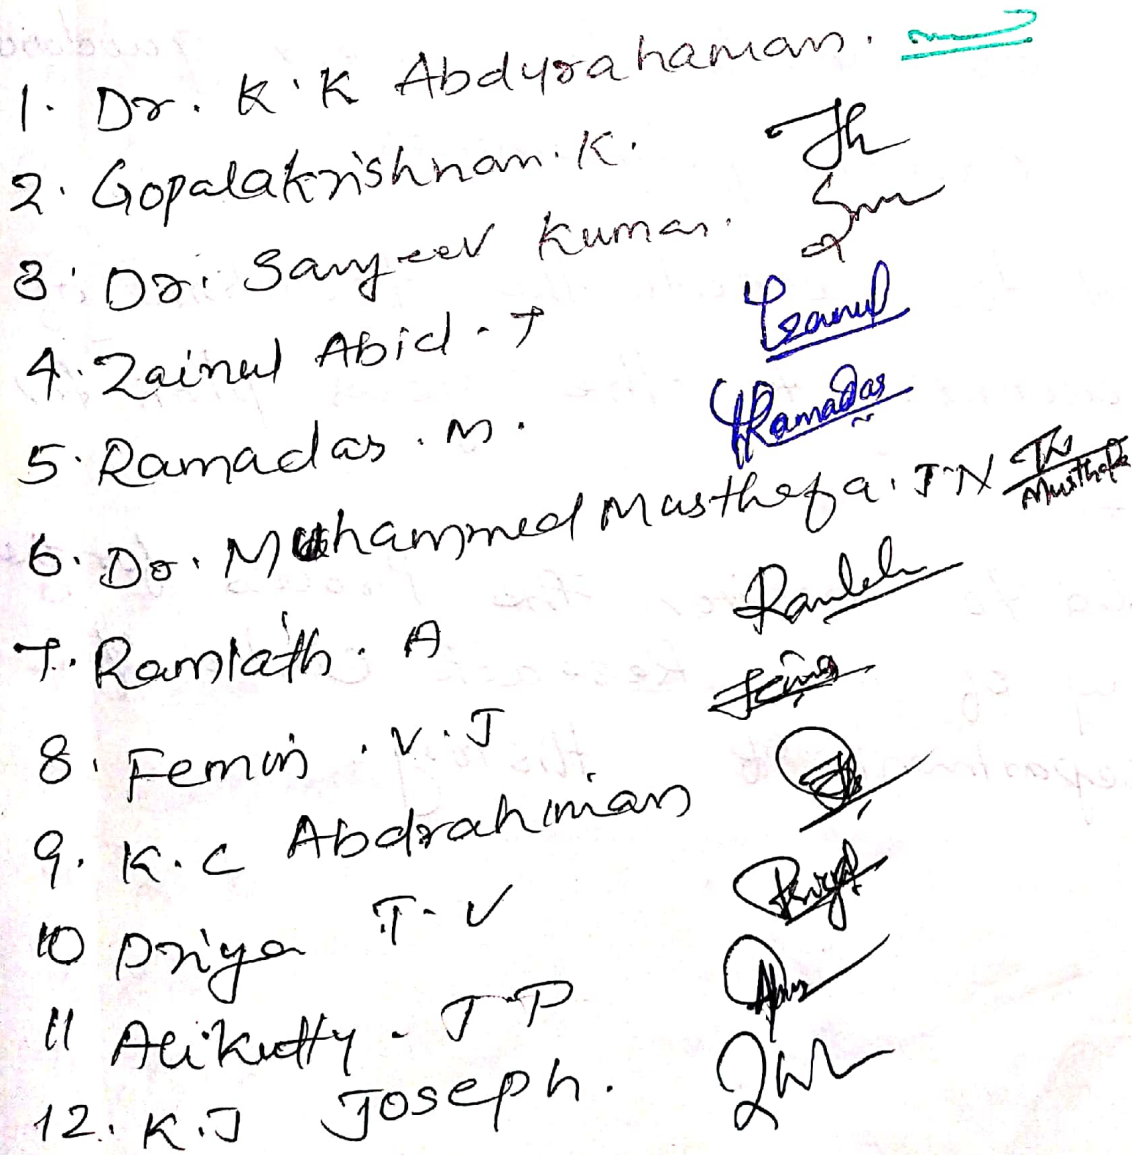 1. Dr. K.K Abdurahaman.
2. Gopalakrishnan. K.
3. Dr. Sanjeev Kumar.
4. Zainul Abid. T Zainul
5. Ramadas. M. Ramadas
6. Dr. Muhammed Musthafa. T.N Musthafa
7. Ramlath. A
8. Femin. V. J
9. K. C Abdrahiman
10 Priya T. V Priya
11 Alikutty. T P
12. K.J Joseph.